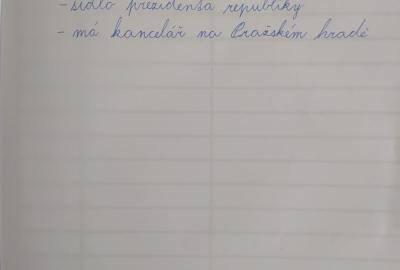 - sídlo prezidenta republiky
- má kancelář na Pražském hradě